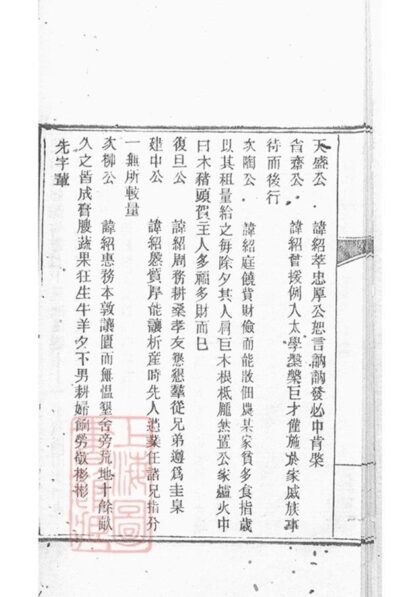 天盛公　諱紹莘忠厚公恕言訥訥發必中肯綮
省齋公　諱紹曾援例入太學槃槃巨才僅施於家戚族事
待而後行
次陶公　諱紹庭饒貲財儉而能散佃農某家貧多食指歲
以其租量給之每除夕其人肩巨木根柢龐然置公家爐火中
曰木豬頭賀主人多福多財而已
復旦公　諱紹周務耕桑孝友懇懇羣從兄弟遵爲圭臬
建中公　諱紹㦤質厚能讓析産時先人遺業任諸兄指分
一無所較量
次柳公　諱紹惠務本敦讓匱而無慍墾舍旁荒地十餘畝
久之皆成膏腴蔬果在生牛羊夕下男耕婦饁勞敬彬彬
先字輩
上海圖書館藏